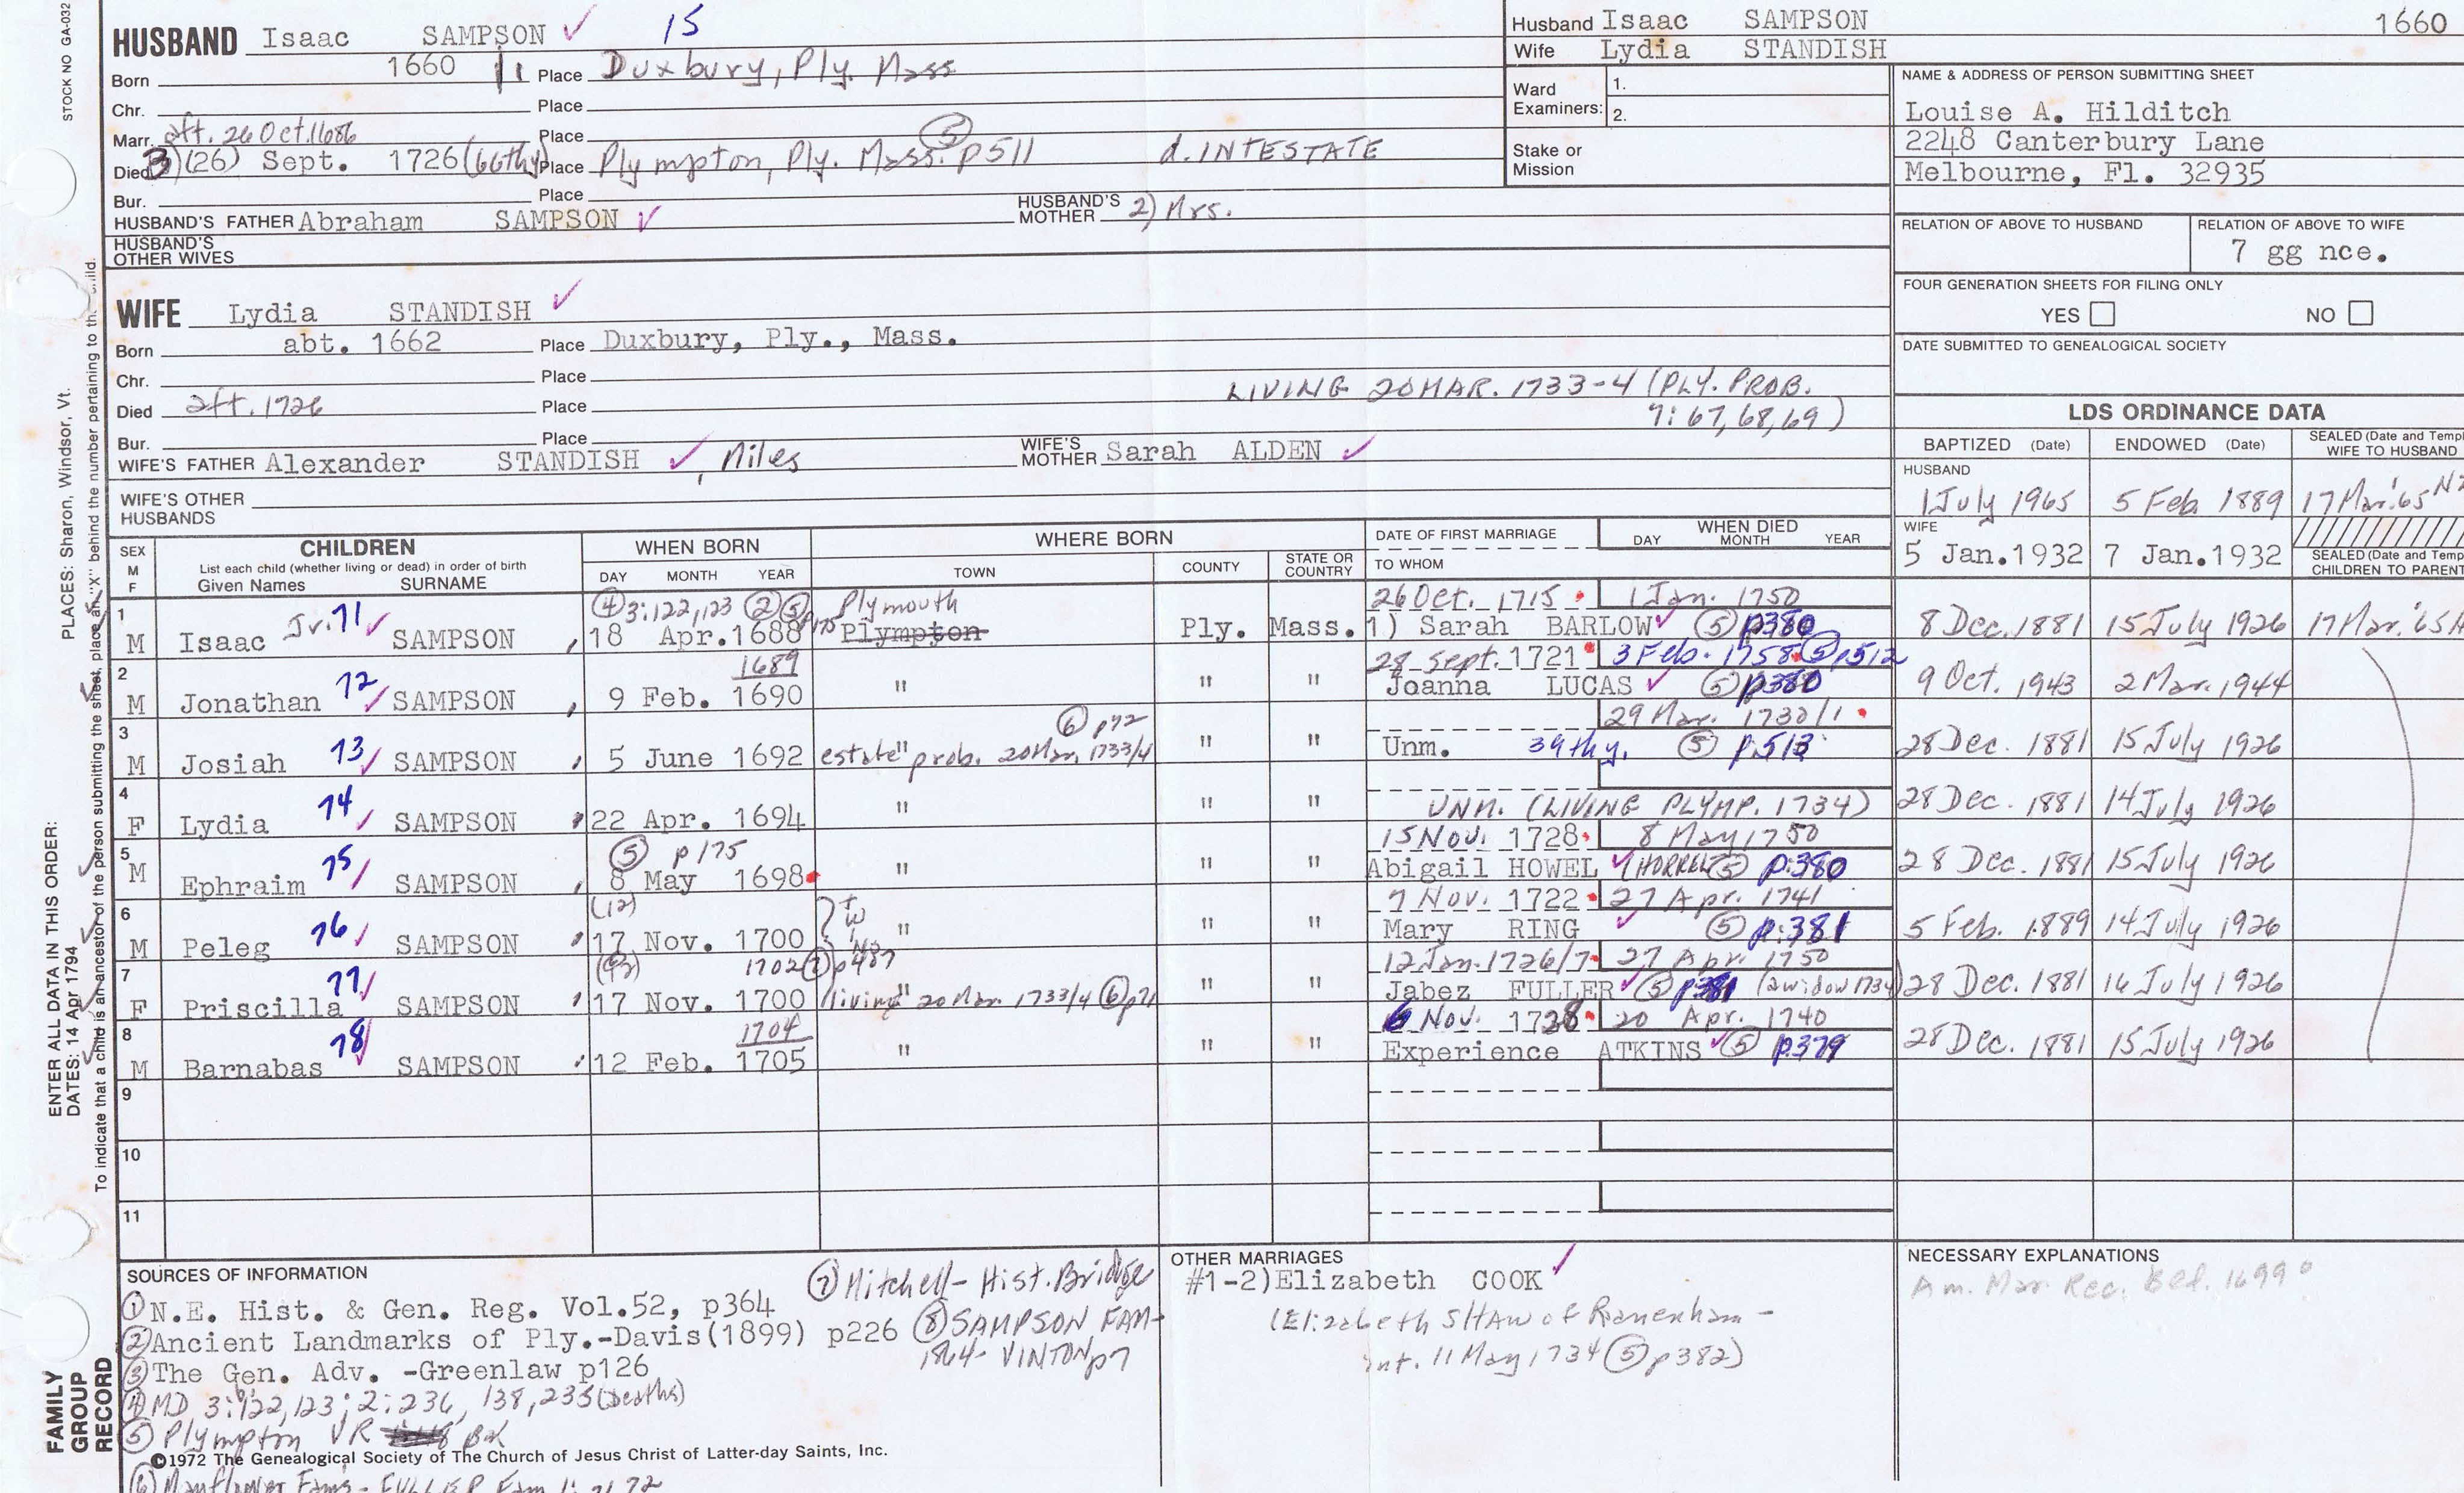 STOCK NO GA-032
HUSBAND Isaac SAMPSON ✓ 15
Born 1660 Place Duxbury, Ply. Mass
Chr. Place
Marr. aft. 26 Oct. 1686 Place
Died (26) Sept. 1726 (66thy) Place Plympton, Ply. Mass. ⑤ p511 d. INTESTATE
Bur. Place
HUSBAND'S FATHER Abraham SAMPSON ✓ HUSBAND'S MOTHER 2) Mrs.
HUSBAND'S OTHER WIVES
WIFE Lydia STANDISH ✓
Born abt. 1662 Place Duxbury, Ply., Mass.
Chr. Place
LIVING 20 MAR. 1733-4 (PLY. PROB.
Died aft. 1726 Place 7: 67, 68, 69)
Bur. Place
WIFE'S FATHER Alexander STANDISH ✓, Miles WIFE'S MOTHER Sarah ALDEN ✓
WIFE'S OTHER HUSBANDS
Husband Isaac SAMPSON 1660
Wife Lydia STANDISH
Ward Examiners: 1.
2.
Stake or Mission
NAME & ADDRESS OF PERSON SUBMITTING SHEET
Louise A. Hilditch
2248 Canterbury Lane
Melbourne, Fl. 32935
RELATION OF ABOVE TO HUSBAND RELATION OF ABOVE TO WIFE
7 gg nce.
FOUR GENERATION SHEETS FOR FILING ONLY
YES NO
DATE SUBMITTED TO GENEALOGICAL SOCIETY
LDS ORDINANCE DATA
BAPTIZED (Date) ENDOWED (Date) SEALED (Date and Temp WIFE TO HUSBAND
HUSBAND
1 July 1965 5 Feb 1889 17 Mar. '65
WIFE
5 Jan. 1932 7 Jan. 1932 SEALED (Date and Temp CHILDREN TO PARENT
SEX M F CHILDREN List each child (whether living or dead) in order of birth Given Names SURNAME WHEN BORN DAY MONTH YEAR WHERE BORN TOWN COUNTY STATE OR COUNTRY DATE OF FIRST MARRIAGE TO WHOM WHEN DIED DAY MONTH YEAR
1 ④ 3:122,123 ② ⑤ Plymouth 26 Oct. 1715 1 Jan. 1750
M Isaac Jr. 71 ✓ SAMPSON 18 Apr. 1688 p175 Plympton Ply. Mass. 1) Sarah BARLOW ✓ ⑤ p380 8 Dec. 1881 15 July 1926 17 Mar. '65
2 1689 28 Sept. 1721 3 Feb. 1758 ⑤ p512
M Jonathan 72 ✓ SAMPSON 9 Feb. 1690 " " " Joanna LUCAS ✓ ⑤ p380 9 Oct. 1943 2 Mar. 1944
3 ⑥ p72 29 Mar. 1730/1
M Josiah 73 ✓ SAMPSON 5 June 1692 estate " prob. 20 Mar. 1733/4 " " Unm. 39thy. ⑤ p.513 28 Dec. 1881 15 July 1926
4
F Lydia 74 ✓ SAMPSON 22 Apr. 1694 " " " UNM. (LIVING PLYMP. 1734) 28 Dec. 1881 14 July 1926
5 ⑤ p175 15 Nov. 1728 8 May 1750
M Ephraim 75 ✓ SAMPSON 8 May 1698 " " " Abigail HOWEL ✓ ⑤ p.380 28 Dec. 1881 15 July 1926
6 (12) 7 Nov. 1722 27 Apr. 1741
M Peleg 76 ✓ SAMPSON 17 Nov. 1700 ? tw " " " Mary RING ✓ ⑤ p.381 5 Feb. 1889 14 July 1926
7 1702 No 12 Jan. 1726/7 27 Apr. 1750
F Priscilla 77 ✓ SAMPSON 17 Nov. 1700 living " 20 Mar. 1733/4 ⑥ p71 Jabez FULLER ✓ ⑤ p381 (a widow 1734) 28 Dec. 1881 16 July 1926
8 1704 6 Nov. 1728 20 Apr. 1740
M Barnabas 78 ✓ SAMPSON 12 Feb. 1705 " " " Experience ATKINS ✓ ⑤ p379 28 Dec. 1881 15 July 1926
9
10
11
SOURCES OF INFORMATION
① N.E. Hist. & Gen. Reg. Vol.52, p364
② Ancient Landmarks of Ply.-Davis(1899) p226
③ The Gen. Adv. -Greenlaw p126
④ MD 3:122,123; 2:236, 138, 235 (Deaths)
⑤ Plympton VR Bk
⑥ Mayflower Fams - FULLER Fam 1: 71, 72
⑦ Mitchell - Hist. Bridge
⑧ SAMPSON FAM - 1864 - VINTON p7
©1972 The Genealogical Society of The Church of Jesus Christ of Latter-day Saints, Inc.
OTHER MARRIAGES
#1-2) Elizabeth COOK ✓
(Elizabeth SHAW of -
int. 11 May 1734 ⑤ p382)
NECESSARY EXPLANATIONS
Am. Mar. Rec. Bef. 1699
ENTER ALL DATA IN THIS ORDER:
PLACES: Sharon, Windsor, Vt.
DATES: 14 Apr 1794
To indicate that a child is an ancestor of the person submitting the sheet, place an "X" behind the number pertaining to the child.
FAMILY GROUP RECORD